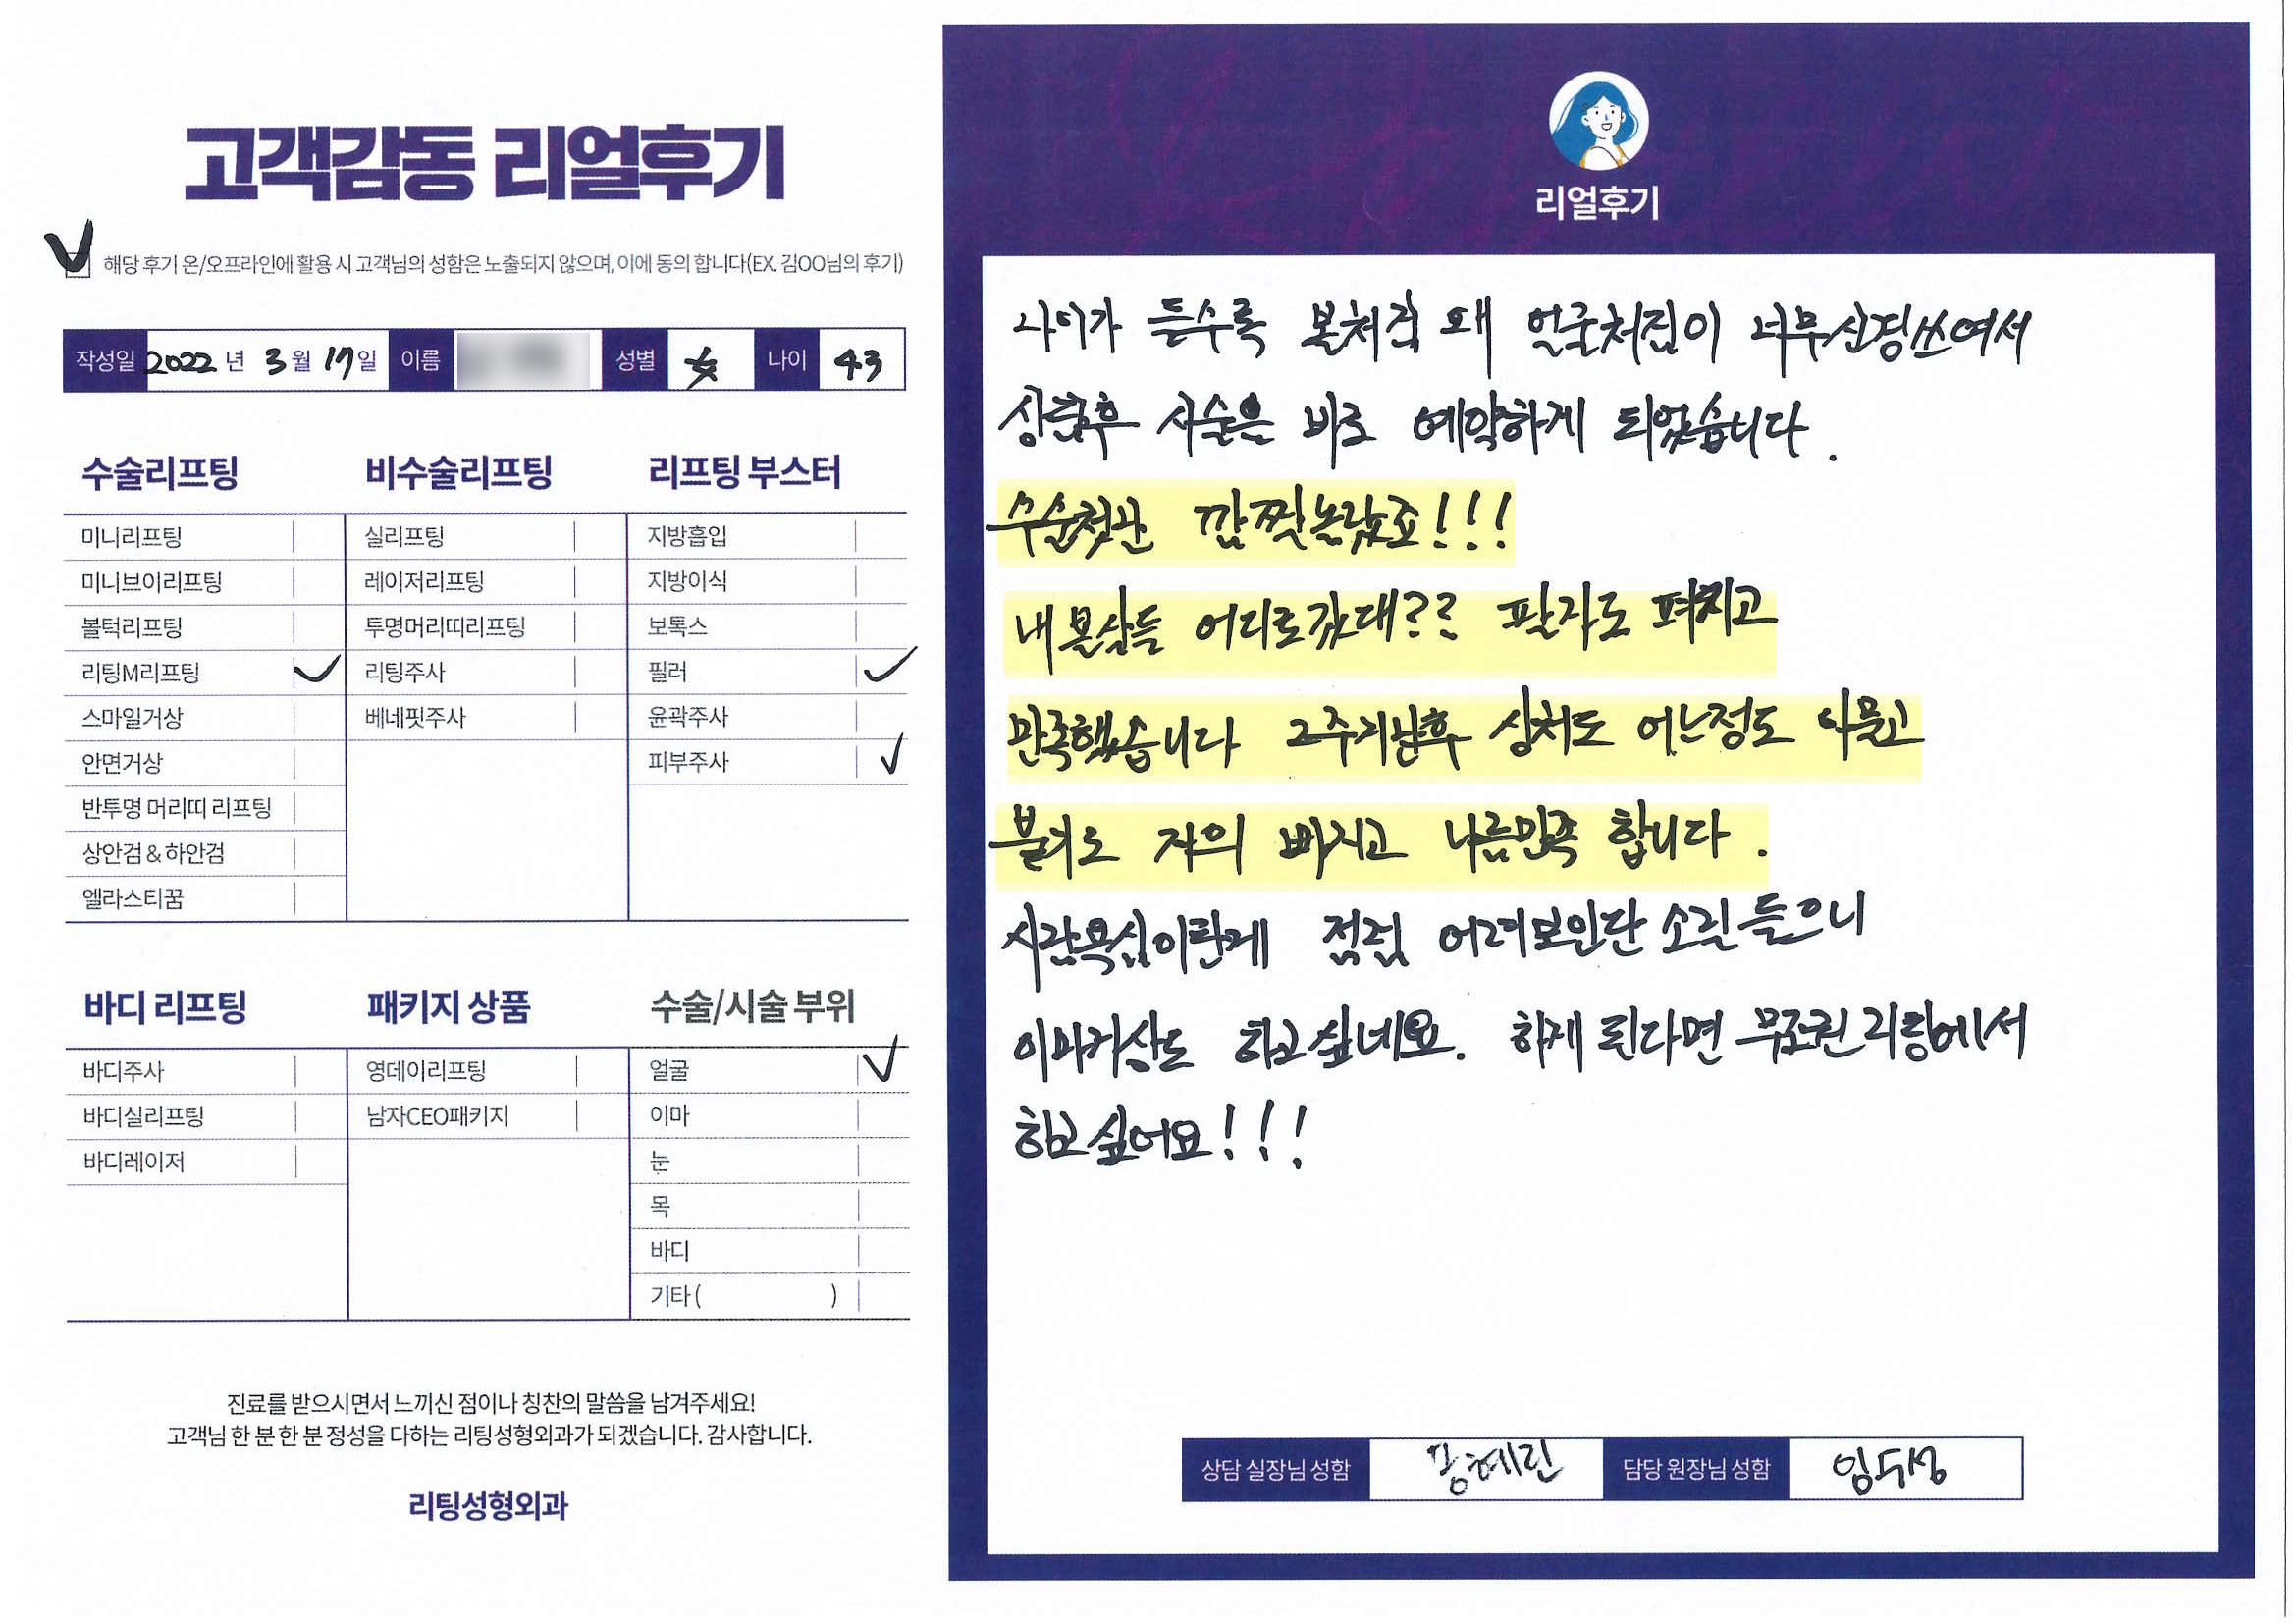 고객감동 리얼후기
해당 후기 온/오프라인에 활용 시 고객님의 성함은 노출되지 않으며, 이에 동의 합니다(EX. 김OO님의 후기)
작성일 2022 년 3 월 17 일 이름 성별 女 나이 43
수술리프팅
미니리프팅
미니브이리프팅
볼턱리프팅
리팅M리프팅
스마일거상
안면거상
반투명 머리띠 리프팅
상안검 & 하안검
엘라스티꿈
비수술리프팅
실리프팅
레이저리프팅
투명머리띠리프팅
리팅주사
베네핏주사
리프팅 부스터
지방흡입
지방이식
보톡스
필러
윤곽주사
피부주사
바디 리프팅
바디주사
바디실리프팅
바디레이저
패키지 상품
영데이리프팅
남자CEO패키지
수술/시술 부위
얼굴
이마
눈
목
바디
기타 ( )
진료를 받으시면서 느끼신 점이나 칭찬의 말씀을 남겨주세요!
고객님 한 분 한 분 정성을 다하는 리팅성형외과가 되겠습니다. 감사합니다.
리팅성형외과
리얼후기
나이가 들수록 볼처짐 왜 얼굴처짐이 너무신경쓰여서
상담후 시술은 바로 예약하게 되었습니다.
수술첫날 깜짝놀랐죠!!!
내 볼살들 어디로갔대?? 팔자도 펴지고
만족했습니다 2주지난후 상처도 어느정도 아물고
붙기도 거의 빠지고 나름만족 합니다.
사람욕심이란게 점점 어려보인단 소릴 들으니
이마거상도 하고싶네요. 하게 된다면 무조건 리팅에서
하고싶어요!!!
상담 실장님 성함 담당 원장님 성함 임두성